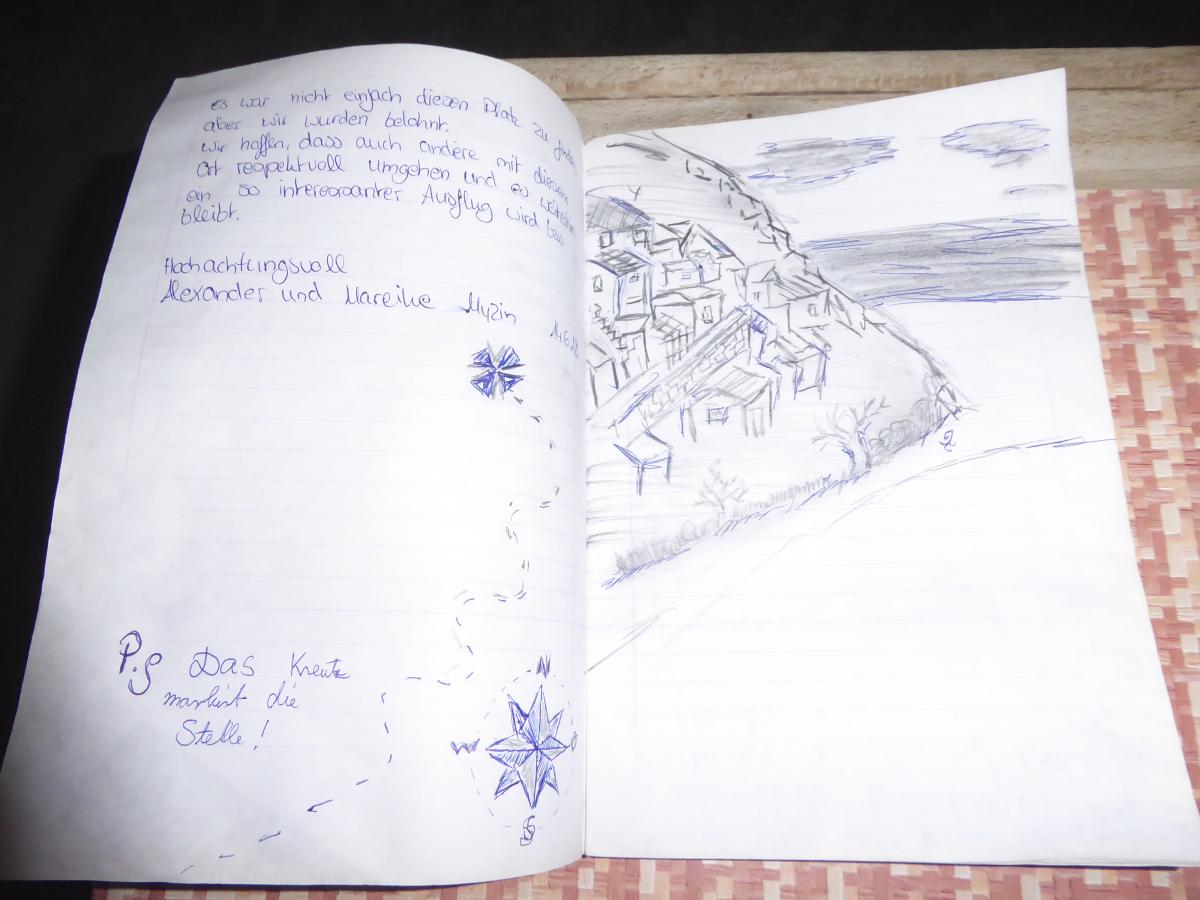 es war nicht einfach diesen Platz zu finden
aber wir wurden belohnt.
wir hoffen, dass auch andere mit diesem
Ort respektvoll umgehen und es weiterhin
ein so interessanter Ausflug wird bzw
bleibt.
Hochachtungsvoll
Alexander und Mareike Myzin
14.6.18
P.S Das Kreutz
markirt die
Stelle!
N
W O
S